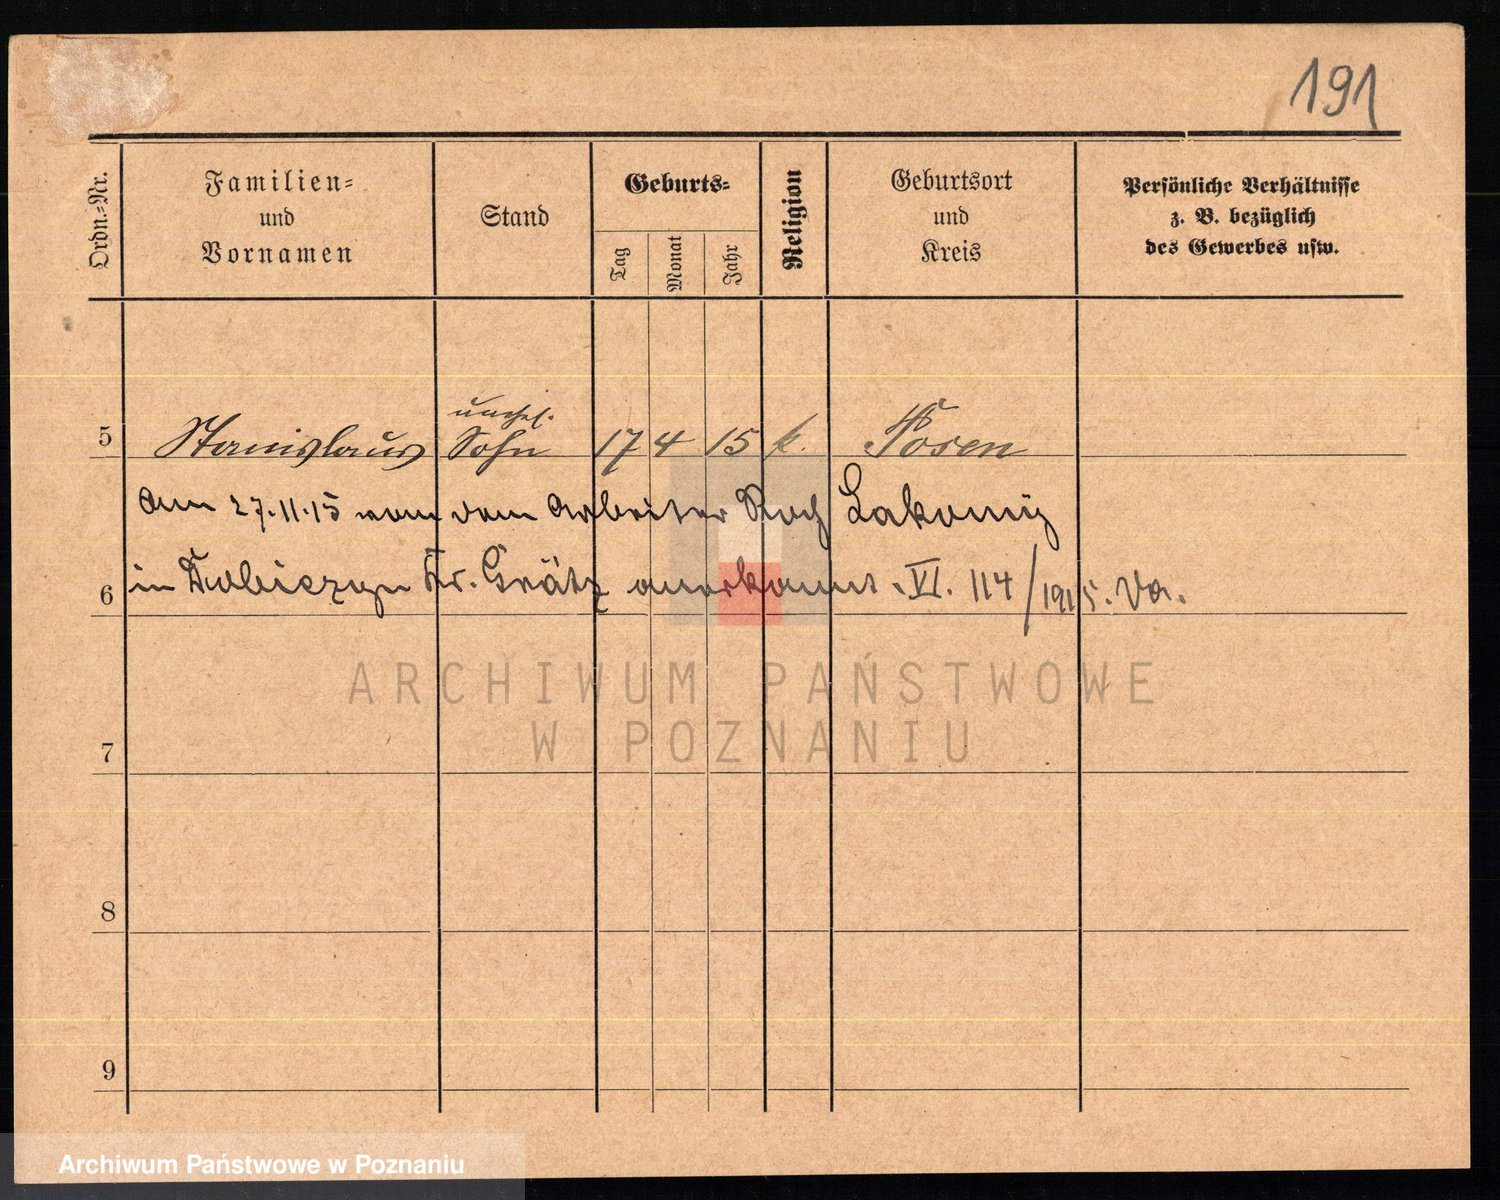 191
Ordn.-Nr.
Familien-
und
Vornamen
Stand
Geburts-
Tag
Monat
Jahr
Religion
Geburtsort
und
Kreis
Persönliche Verhältnisse
z. B. bezüglich
des Gewerbes usw.
unehel.
5 Stanislaus Sohn 17 4 15 k. Posen
Am 27.11.15 von dem Arbeiter Roch Lakomy
6 in Kr. Grätz anerkannt. VI. 114/1915.
ARCHIWUM PAŃSTWOWE
W POZNANIU
7
8
9
Archiwum Państwowe w Poznaniu